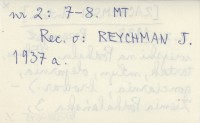 nr 2: 7-8. MT
Rec. o: REYCHMAN J.
1937 a.